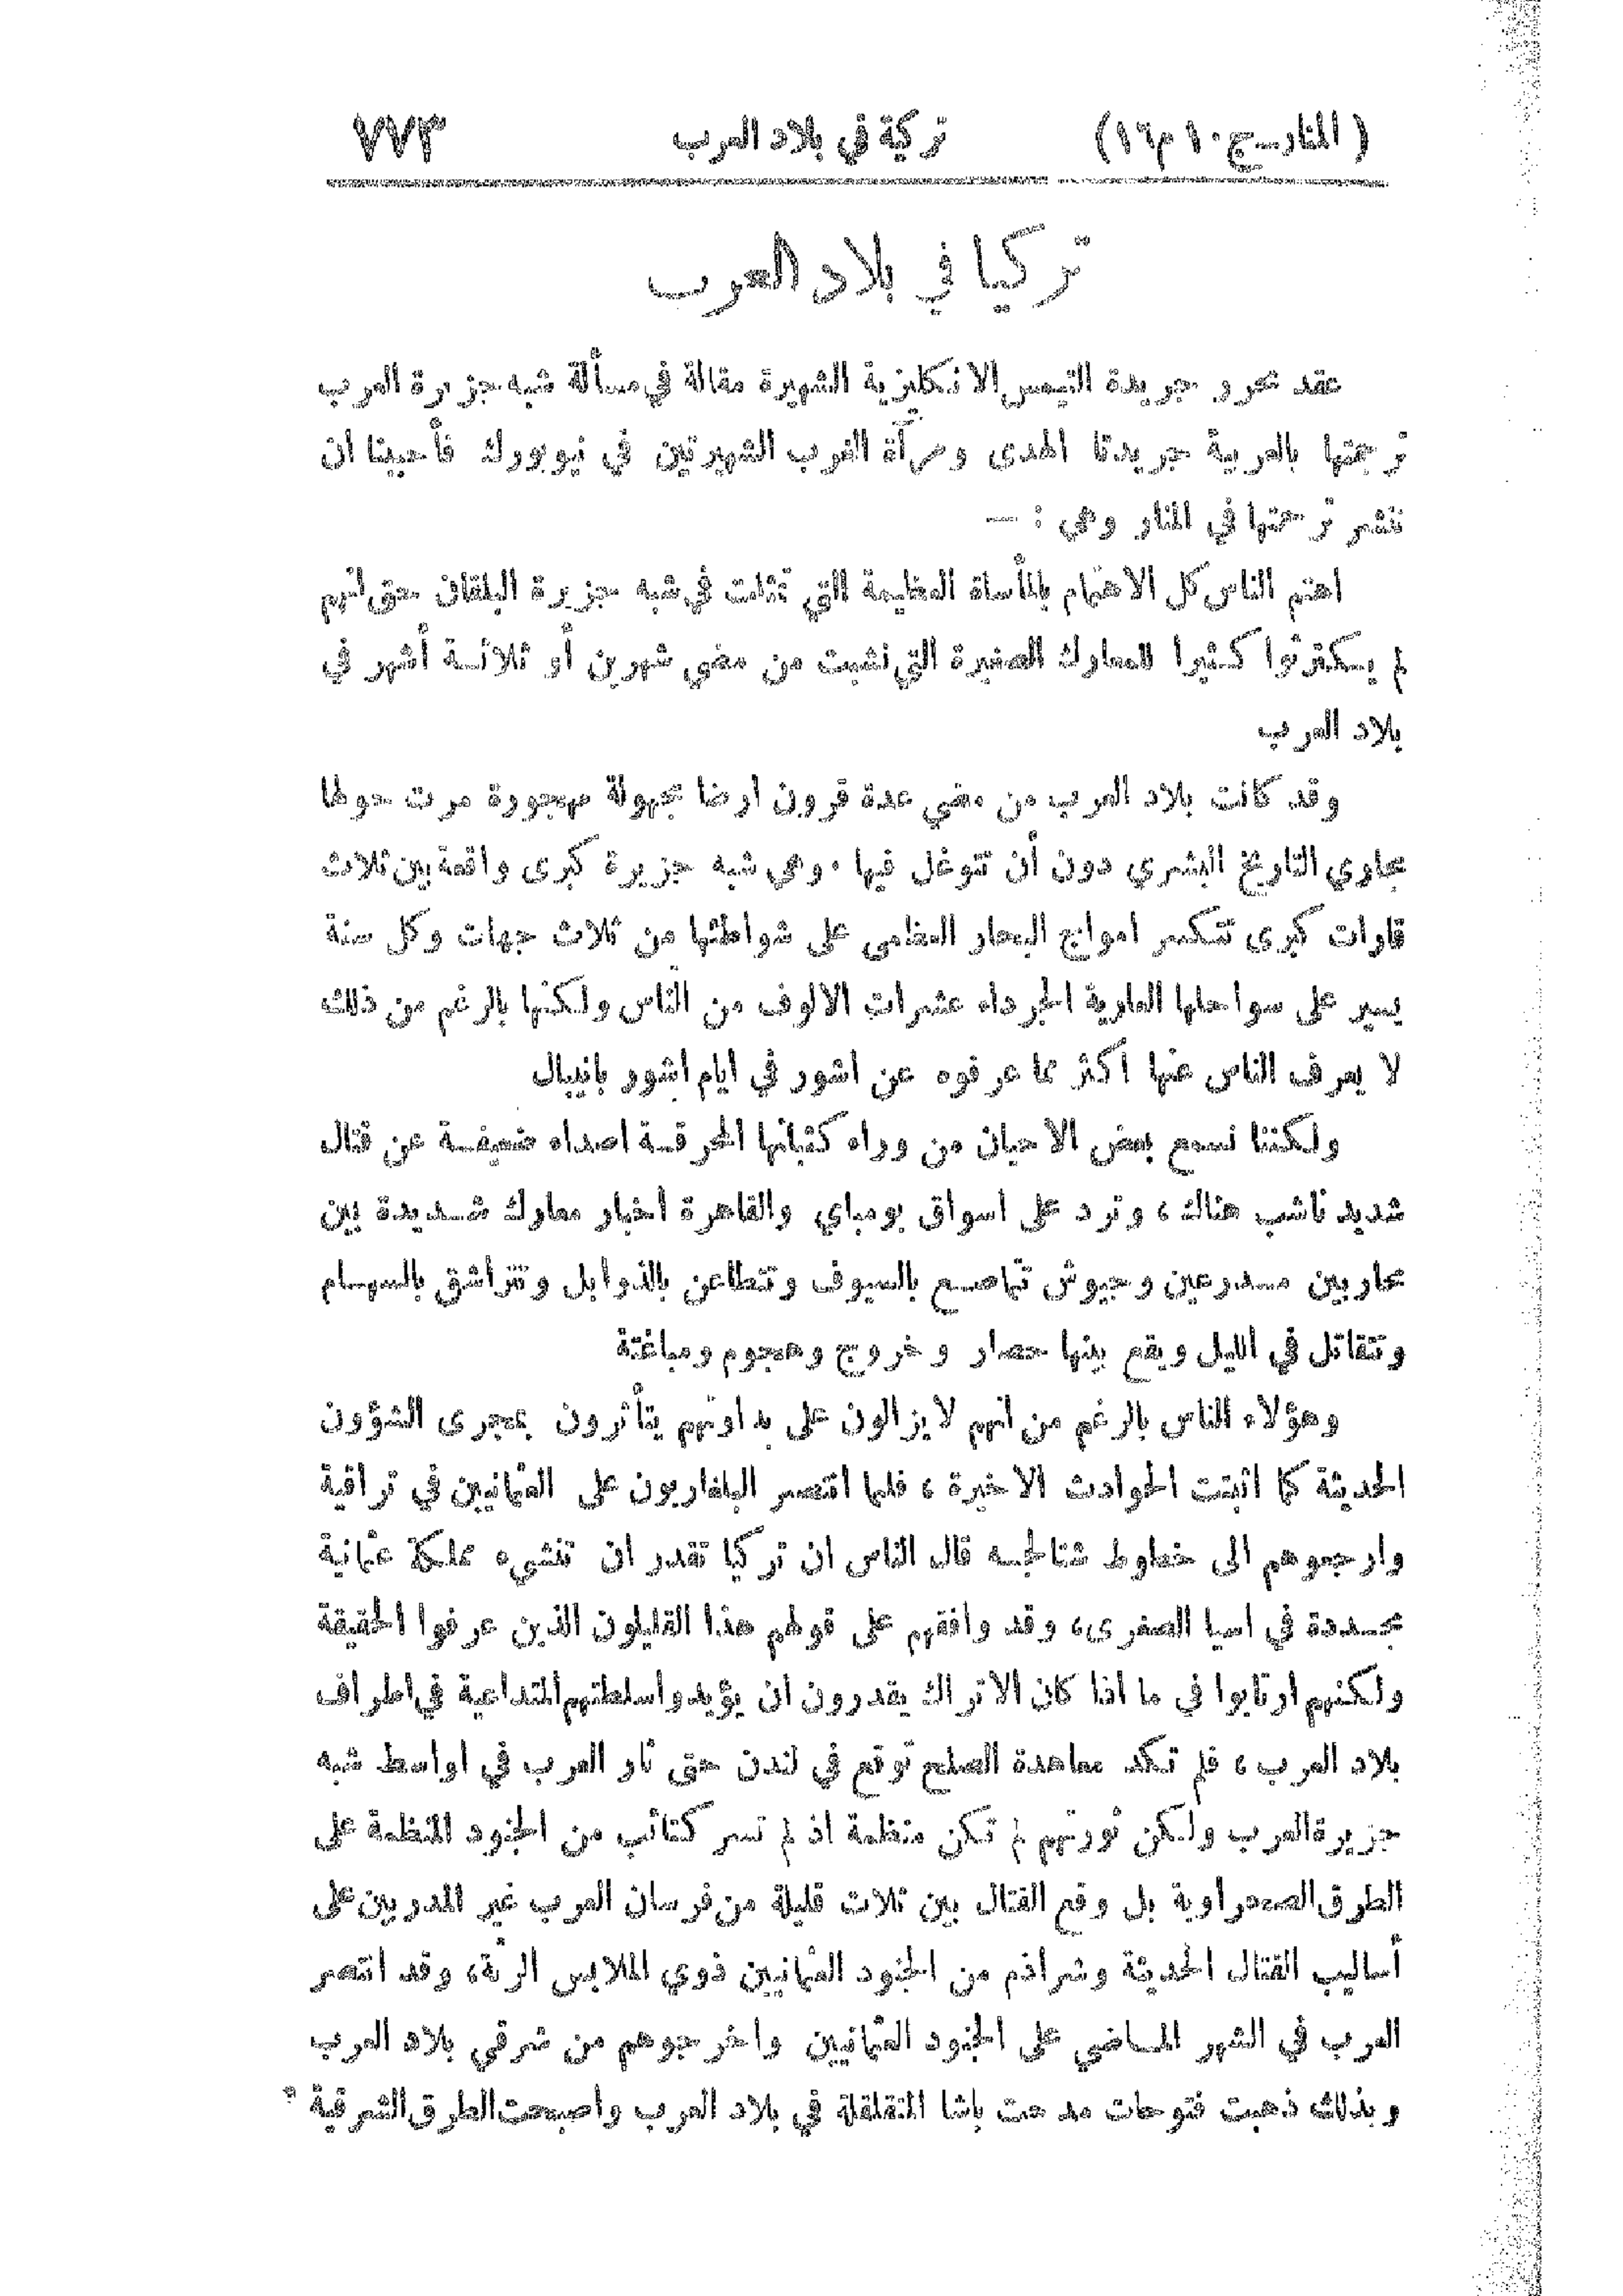 (المنار ـ ج ١٠ م ١٦) تركية في بلاد العرب ٧٧٣
تركيا في بلاد العرب
عقد محرر جريدة التيمس الانكليزية الشهيرة مقالة في مسألة شبه جزيرة العرب
ترجمتها بالعربية جريدتا الهدى ومرآة الغرب الشهيرتين في نيويورك فأحببنا ان
ننشر ترجمتها في المنار وهي : —
اهتم الناس كل الاهتمام بالمأساة العظيمة التي تمثلت في شبه جزيرة البلقان حتى انهم
لم يكترثوا كثيرا للمعارك الصغيرة التي نشبت من مضي شهرين أو ثلاثة أشهر في
بلاد العرب
وقد كانت بلاد العرب من مضي عدة قرون ارضا مجهولة مهجورة مرت حولها
مجاري التاريخ البشري دون أن تتوغل فيها . وهي شبه جزيرة كبرى واقعة بين ثلاث
قارات كبرى تتكسر امواج البحار العظامى على شواطئها من ثلاث جهات وكل سنة
يسير على سواحلها العارية الجرداء عشرات الالوف من الناس ولكنها بالرغم من ذلك
لا يعرف الناس عنها اكثر مما عرفوه عن اشور في ايام اشور بانيبال
ولكننا نسمع بعض الاحيان من وراء كثبانها المحرقة اصداء ضعيفة عن قتال
شديد ناشب هناك ، وترد على اسواق بومباي والقاهرة اخبار معارك شديدة بين
محاربين مدرعين وجيوش تماصع بالسيوف وتتطاعن بالذوابل وتتراشق بالسهام
وتتقاتل في الليل ويقع بينها حصار وخروج وهجوم ومباغتة
وهؤلاء الناس بالرغم من انهم لايزالون على بداوتهم يتأثرون بمجرى الشؤون
الحديثة كما اثبتت الحوادث الاخيرة ، فلما انتصر البلغاريون على العثمانيين في تراقية
وارجعوهم الى خطوط شتالجه قال الناس ان تركيا تقدر ان تنشيء مملكة عثمانية
مجددة في اسيا الصغرى، وقد وافقهم على قولهم هذا القليلون الذين عرفوا الحقيقة
ولكنهم ارتابوا في ما اذا كان الاتراك يقدرون ان يؤيدوا سلطتهم المتداعية في اطراف
بلاد العرب ، فلم تكد معاهدة الصلح توقع في لندن حتى ثار العرب في اواسط شبه
جزيرة العرب ولكن ثورتهم لم تكن منظمة اذ لم تسر كتائب من الجنود المنظمة على
الطرق الصحراوية بل وقع القتال بين ثلات قليلة من فرسان العرب غير المدربين على
أساليب القتال الحديثة وشراذم من الجنود العثمانيين ذوي الملابس الرثة، وقد انتصر
العرب في الشهر الماضي على الجنود العثمانيين واخرجوهم من شرقي بلاد العرب
وبذلك ذهبت فتوحات مدحت باشا المتقلقلة في بلاد العرب واصبحت الطرق الشرقية